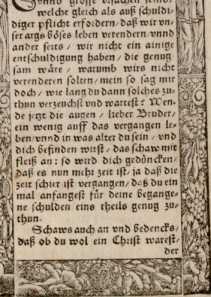 welche gleich als auß schuldi-
diger pflicht erfordern/ daß wir vn-
ser args böses leben verendern vnnd
ander seits/ wir nicht ein ainige
entschuldigung haben/ die genug
sam wäre/ warumb wirs nicht
verenderen solten/ mein so sag mir
doch/ wie lang du dann solches zu-
thun verzeuchst vnd wartest? Wen-
de jetzt die augen/ lieber Bruder/
ein wenig auff das vergangen le-
ben vnnd in was alter du sein/ vnd
dich befinden wirst/ das schaw mit
fleiß an: so wird dich gedüncken/
daß es nun mehr zeit ist/ ja daß die
zeit schier ist vergangen/ daß du ein
mal anfangest für deine begange-
ne schulden eins theils genug zu-
thun.
Schaws auch an vnd bedencks/
daß ob du wol ein Christ warest/
der